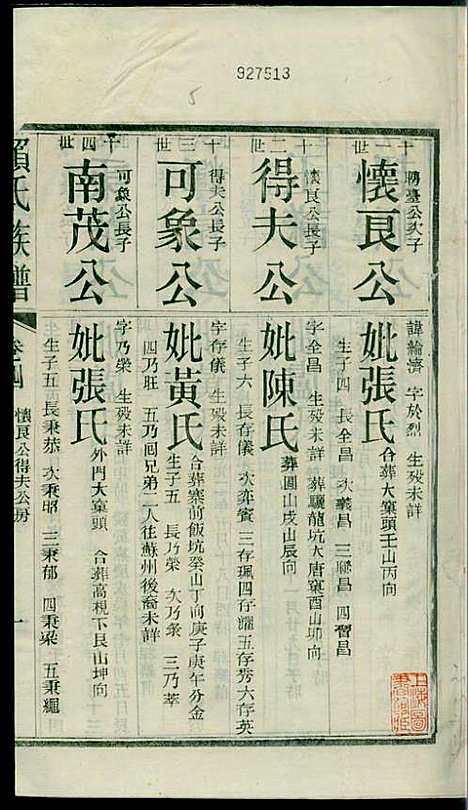 927513
5
十一世
聘臺公次子
懷良公
諱綸濟　字於烈　生歿未詳
妣張氏　合葬大窠頭壬山丙向
生子四　長全昌　次義昌　三聯昌　四習昌
十二世
懷良公長子
得夫公
字全昌　生歿未詳　葬驪龍坑大唐窠酉山卯向
妣陳氏　葬圓山戌山辰向
生子六　長存儀　次存賓　三存珮　四存耀　五存秀　六存英
十三世
得夫公長子
可象公
字存儀　生歿未詳
妣黃氏　合葬寨前飯坑癸山丁向庚子庚午分金
生子五　長乃榮　次乃棠　三乃萃
四乃旺　五乃囘兄弟二人往蘇州後裔未詳
十四世
可象公長子
南茂公
字乃榮　生歿未詳
妣張氏　外門大窠頭　合葬高梘下艮山坤向
生子五　長秉恭　次秉昭　三秉郁　四秉梁　五秉繩
賴氏族譜
卷四
懷良公得夫公房
一